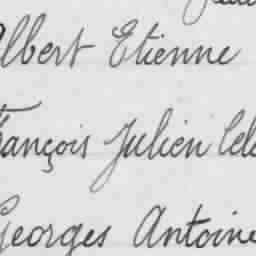 Albert Etienne
François Julien Cele
Georges Antoine